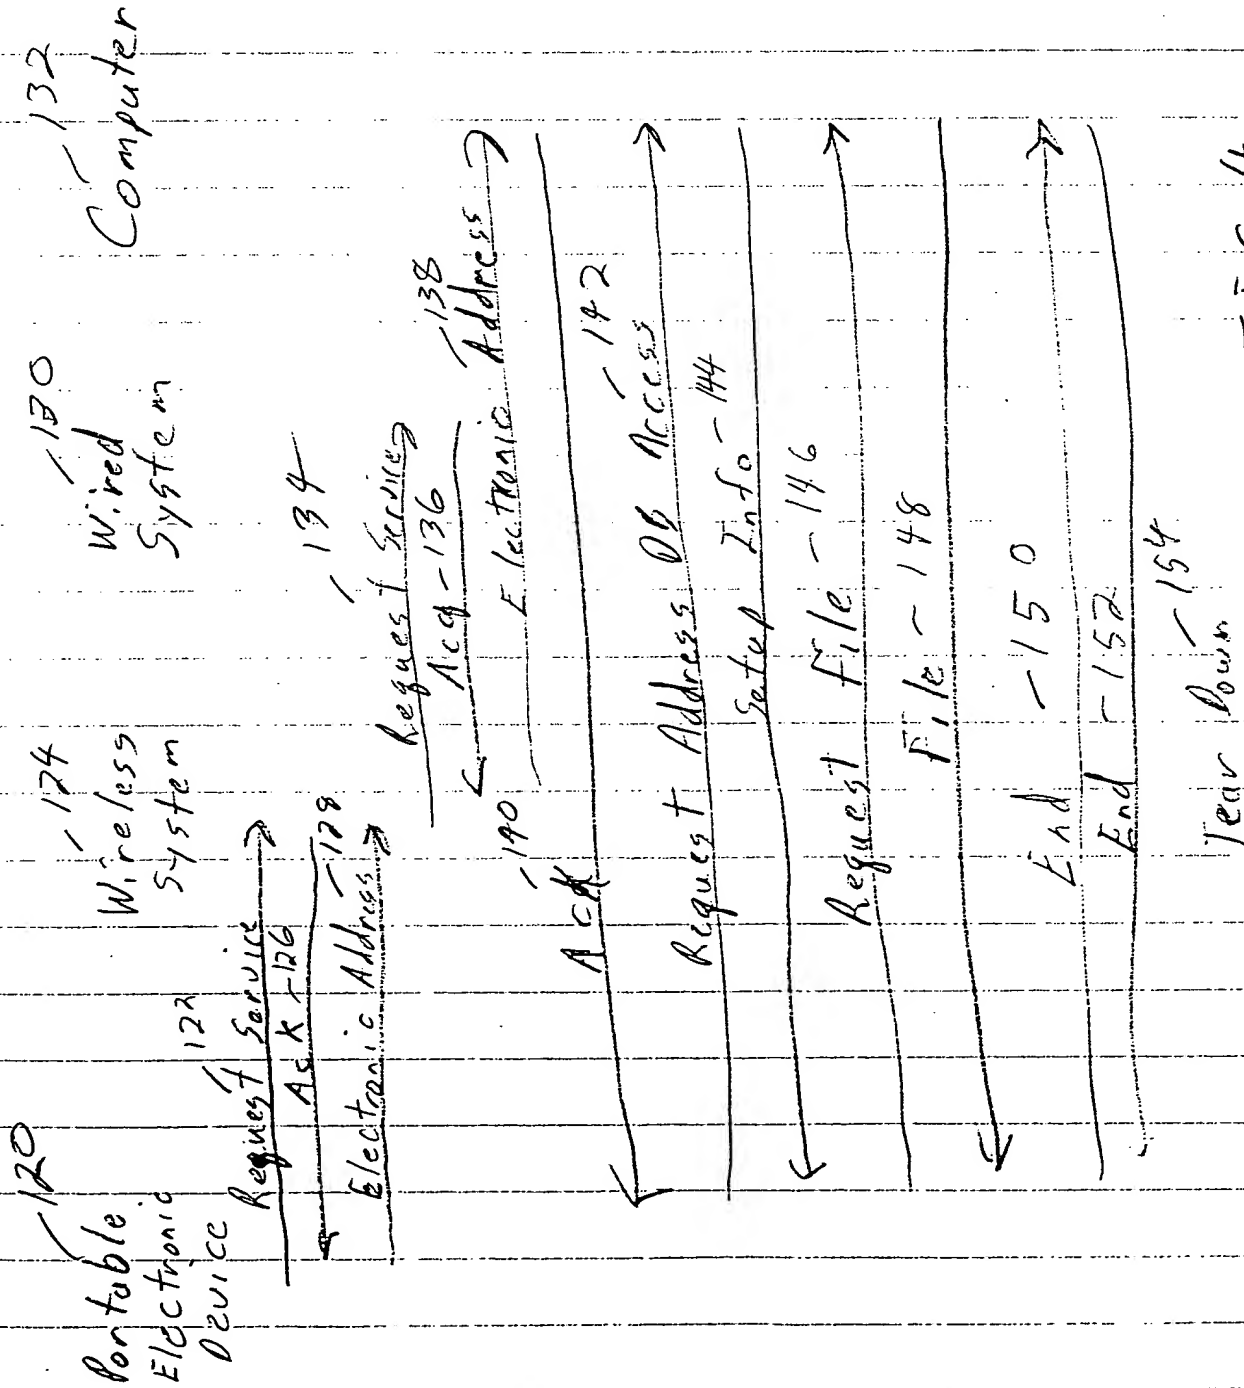 Portable - 120
Electronic
Device
Wireless - 124
System
Wired - 130
System
Computer - 132
Request Service 122
Ack - 126
Electronic Address - 128
Request Service - 134
Acq - 136
Electronic Address - 138
Ack - 140
Request Address DB Access - 142
Setup Info - 144
Request File - 146
File - 148
End - 150
End - 152
Tear Down - 154